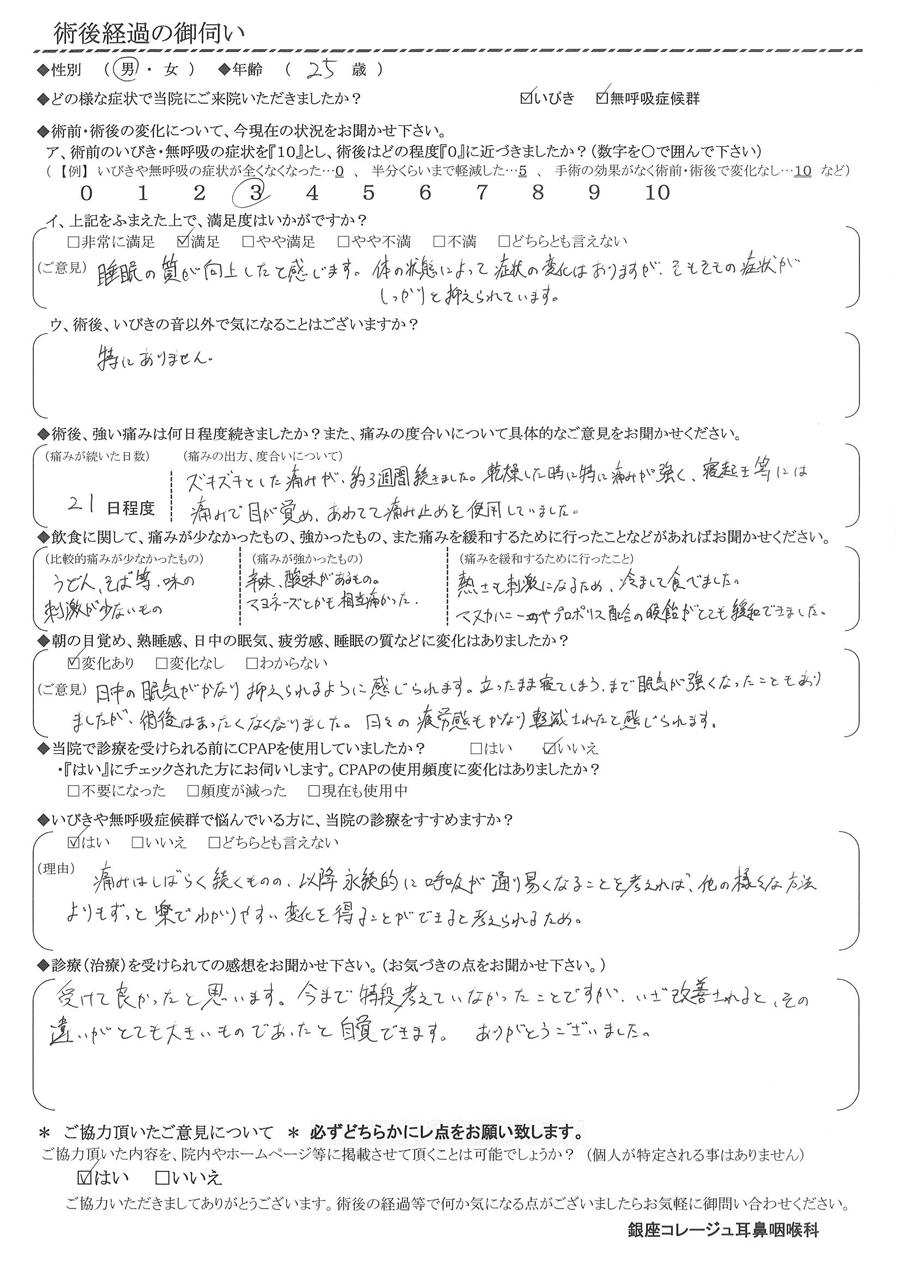 術後経過の御伺い
◆性別　(男・女)　◆年齢　(25 歳)
◆どの様な症状で当院にご来院いただきましたか？　☑いびき　☑無呼吸症候群
◆術前・術後の変化について、今現在の状況をお聞かせ下さい。
ア、術前のいびき・無呼吸の症状を『10』とし、術後はどの程度『0』に近づきましたか？(数字を〇で囲んで下さい)
(【例】いびきや無呼吸の症状が全くなくなった…0 、半分くらいまで軽減した…5 、手術の効果がなく術前・術後で変化なし…10 など)
0 1 2 3 4 5 6 7 8 9 10
イ、上記をふまえた上で、満足度はいかがですか？
□非常に満足　☑満足　□やや満足　□やや不満　□不満　□どちらとも言えない
(ご意見) 睡眠の質が向上したと感じます。体の状態によって症状の変化はありますが、そもそもの症状が
しっかりと抑えられています。
ウ、術後、いびきの音以外で気になることはございますか？
特にありません。
◆術後、強い痛みは何日程度続きましたか？また、痛みの度合いについて具体的なご意見をお聞かせください。
(痛みが続いた日数)　(痛みの出方、度合いについて)
ズキズキとした痛みが、約3週間続きました。乾燥した時に特に痛みが強く、寝起き等には
21 日程度　痛みで目が覚め、あわてて痛み止めを使用していました。
◆飲食に関して、痛みが少なかったもの、強かったもの、また痛みを緩和するために行ったことなどがあればお聞かせください。
(比較的痛みが少なかったもの)　(痛みが強かったもの)　(痛みを緩和するために行ったこと)
うどん、そば等、味の　辛味、酸味があるもの。　熱さも刺激になるため、冷まして食べました。
刺激が少ないもの　マヨネーズとかも相当痛かった。　マヌカハニーやプロポリス配合の喉飴がとても緩和できました。
◆朝の目覚め、熟睡感、日中の眠気、疲労感、睡眠の質などに変化はありましたか？
☑変化あり　□変化なし　□わからない
(ご意見) 日中の眠気がかなり抑えられるように感じられます。立ったまま寝てしまう、まで眠気が強くなったこともあり
ましたが、術後はまったくなくなりました。日々の疲労感もかなり軽減されたと感じられます。
◆当院で診療を受けられる前にCPAPを使用していましたか？　□はい　☑いいえ
・『はい』にチェックされた方にお伺いします。CPAPの使用頻度に変化はありましたか？
□不要になった　□頻度が減った　□現在も使用中
◆いびきや無呼吸症候群で悩んでいる方に、当院の診療をすすめますか？
☑はい　□いいえ　□どちらとも言えない
(理由) 痛みはしばらく続くものの、以降永続的に呼吸が通り易くなることを考えれば、他の様々な方法
よりもずっと楽でわかりやすい変化を得ることができると考えられるため。
◆診療(治療)を受けられての感想をお聞かせ下さい。(お気づきの点をお聞かせ下さい。)
受けて良かったと思います。今まで特段考えていなかったことですが、いざ改善されると、その
違いがとても大きいものであったと自覚できます。　ありがとうございました。
＊ ご協力頂いたご意見について ＊ 必ずどちらかにレ点をお願い致します。
ご協力頂いた内容を、院内やホームページ等に掲載させて頂くことは可能でしょうか？(個人が特定される事はありません)
☑はい　□いいえ
ご協力いただきましてありがとうございます。術後の経過等で何か気になる点がございましたらお気軽に御問い合わせください。
銀座コレージュ耳鼻咽喉科